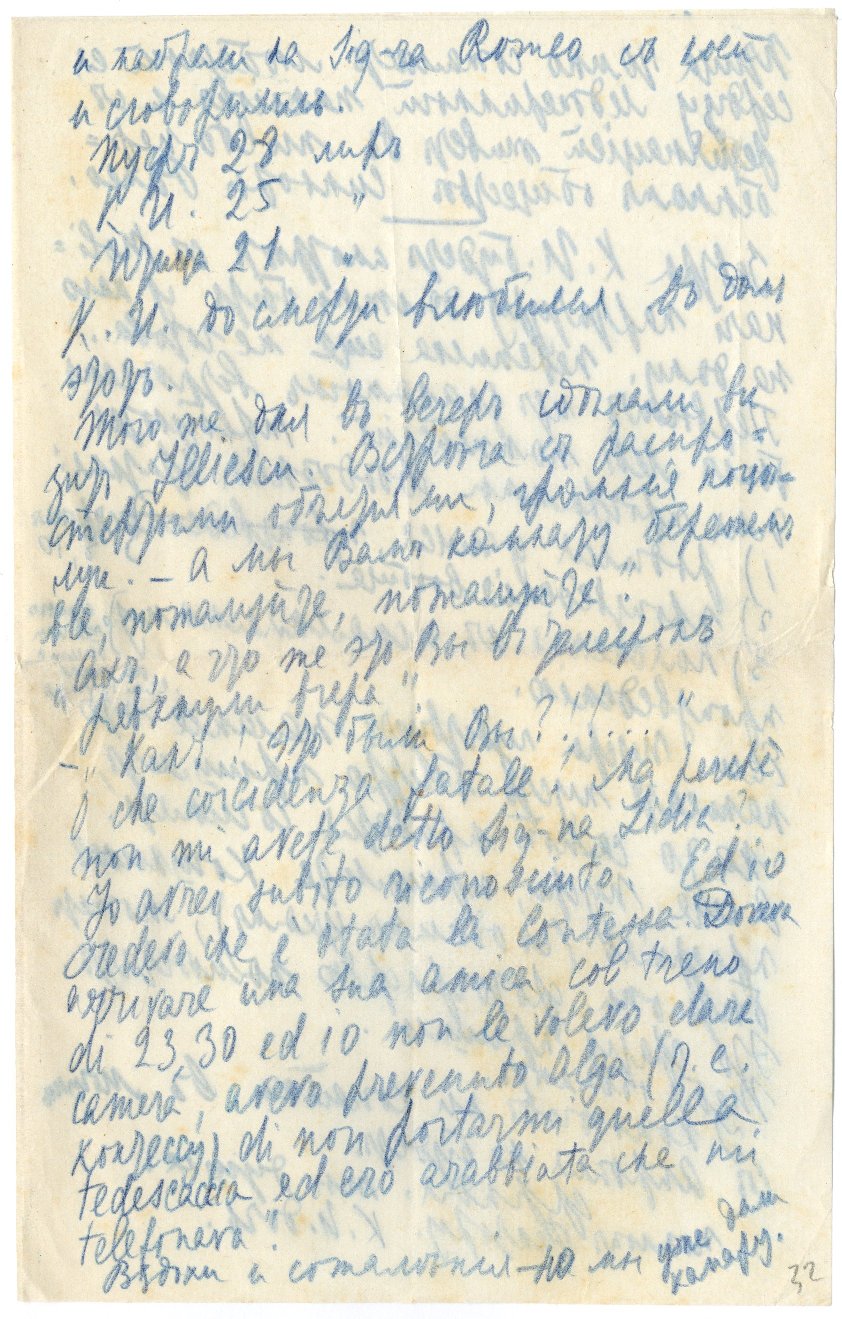 и набрали на Sig-ra Romeo съ ней
и сговорились.
Пусть 28 лиръ
К. И. 25 "
Птица 21 "
К. И. до смерти влюбился въ домъ
этотъ.
Того же дня въ вечеръ сдѣлали ви
зитъ Illiescu. Встрѣча съ распро=
стертыми объятіями, громкія поцѣ-
луи. — А мы Вамъ комнату бережемъ
все, пожалуйте, пожалуйте".
"Ахъ, а что же это Вы въ телефонъ
рявкнули вчера"
— "Какъ! это были Вы?!!......"
che coicidenza fatale! Ma perchè
non mi avete detto Sig-na Lidia.
Jo avrei subito riconosciuto. Ed io
credevo che e stata la Contessa. Doveva
arrivare una sua amica col treno
di 23,30 ed io non le volevo dare
camera, avevo prevenuto Olga (т. е.
контессу) di non portarmi quella
tedescaccia ed ero arabbiata che mi
telefonava".
Вздохи и сожалѣнія — но мы уже дали
комнату.
32